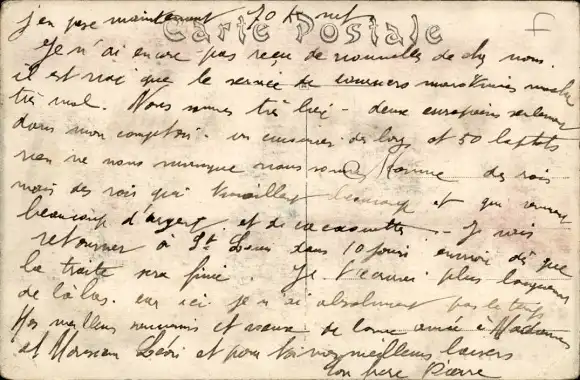 j'en pese maintenant 70 K net
Carte Postale
Je n'ai encore pas reçu de nouvelles de chez nous.
il est vrai que le service de courriers maritimes marche
très mal. Nous sommes très bien - deux européens seulement
dans mon comptoir. un cuisinier. des boys et 50 laptots
rien ne nous manque nous sommes comme des rois
mais des rois qui travaillent beaucoup et qui
beaucoup d'argent et de cacahuettes - Je vais
retourner à St Louis dans 10 jours environ dès que
la traite sera finie. Je t'écrirai plus longuement
de là bas. car ici je n'ai absolument pas le temps
Mes meilleurs souvenirs et voeux de bonne année à Madame
et Monsieur et pour toi mes meilleurs baisers
ton frère Pierre